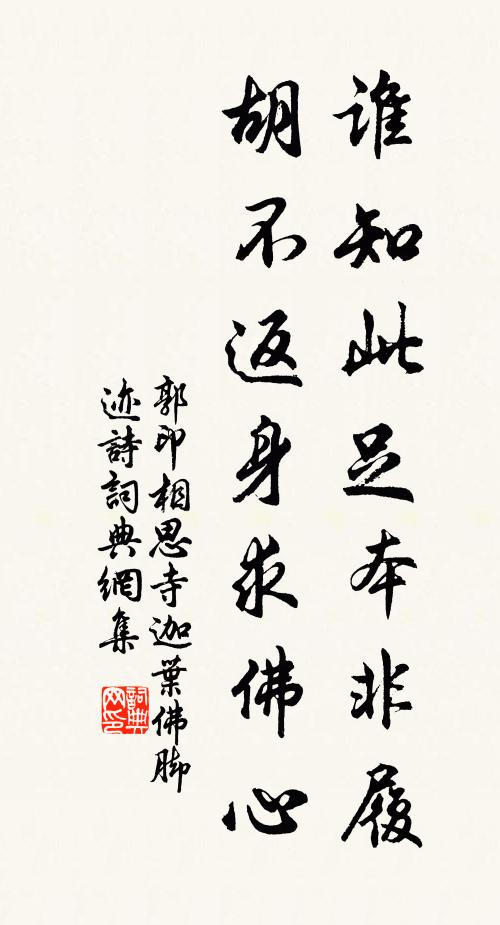 誰知此足本非履
胡不返身求佛心
郭印相思寺迦葉佛脚
迹詩詞典網集
詞典网印